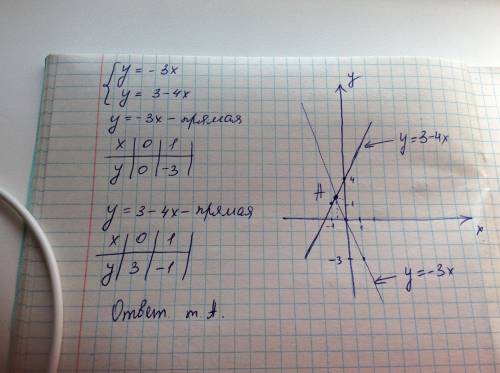 { y = -3x
y = 3-4x
y = -3x - прямая
x | 0 | 1 |
y | 0 | -3 |
y = 3-4x - прямая
x | 0 | 1 |
y | 3 | -1 |
Ответ т A.
y
y = 3-4x
4
A
1
-1
1
x
-3
y = -3x